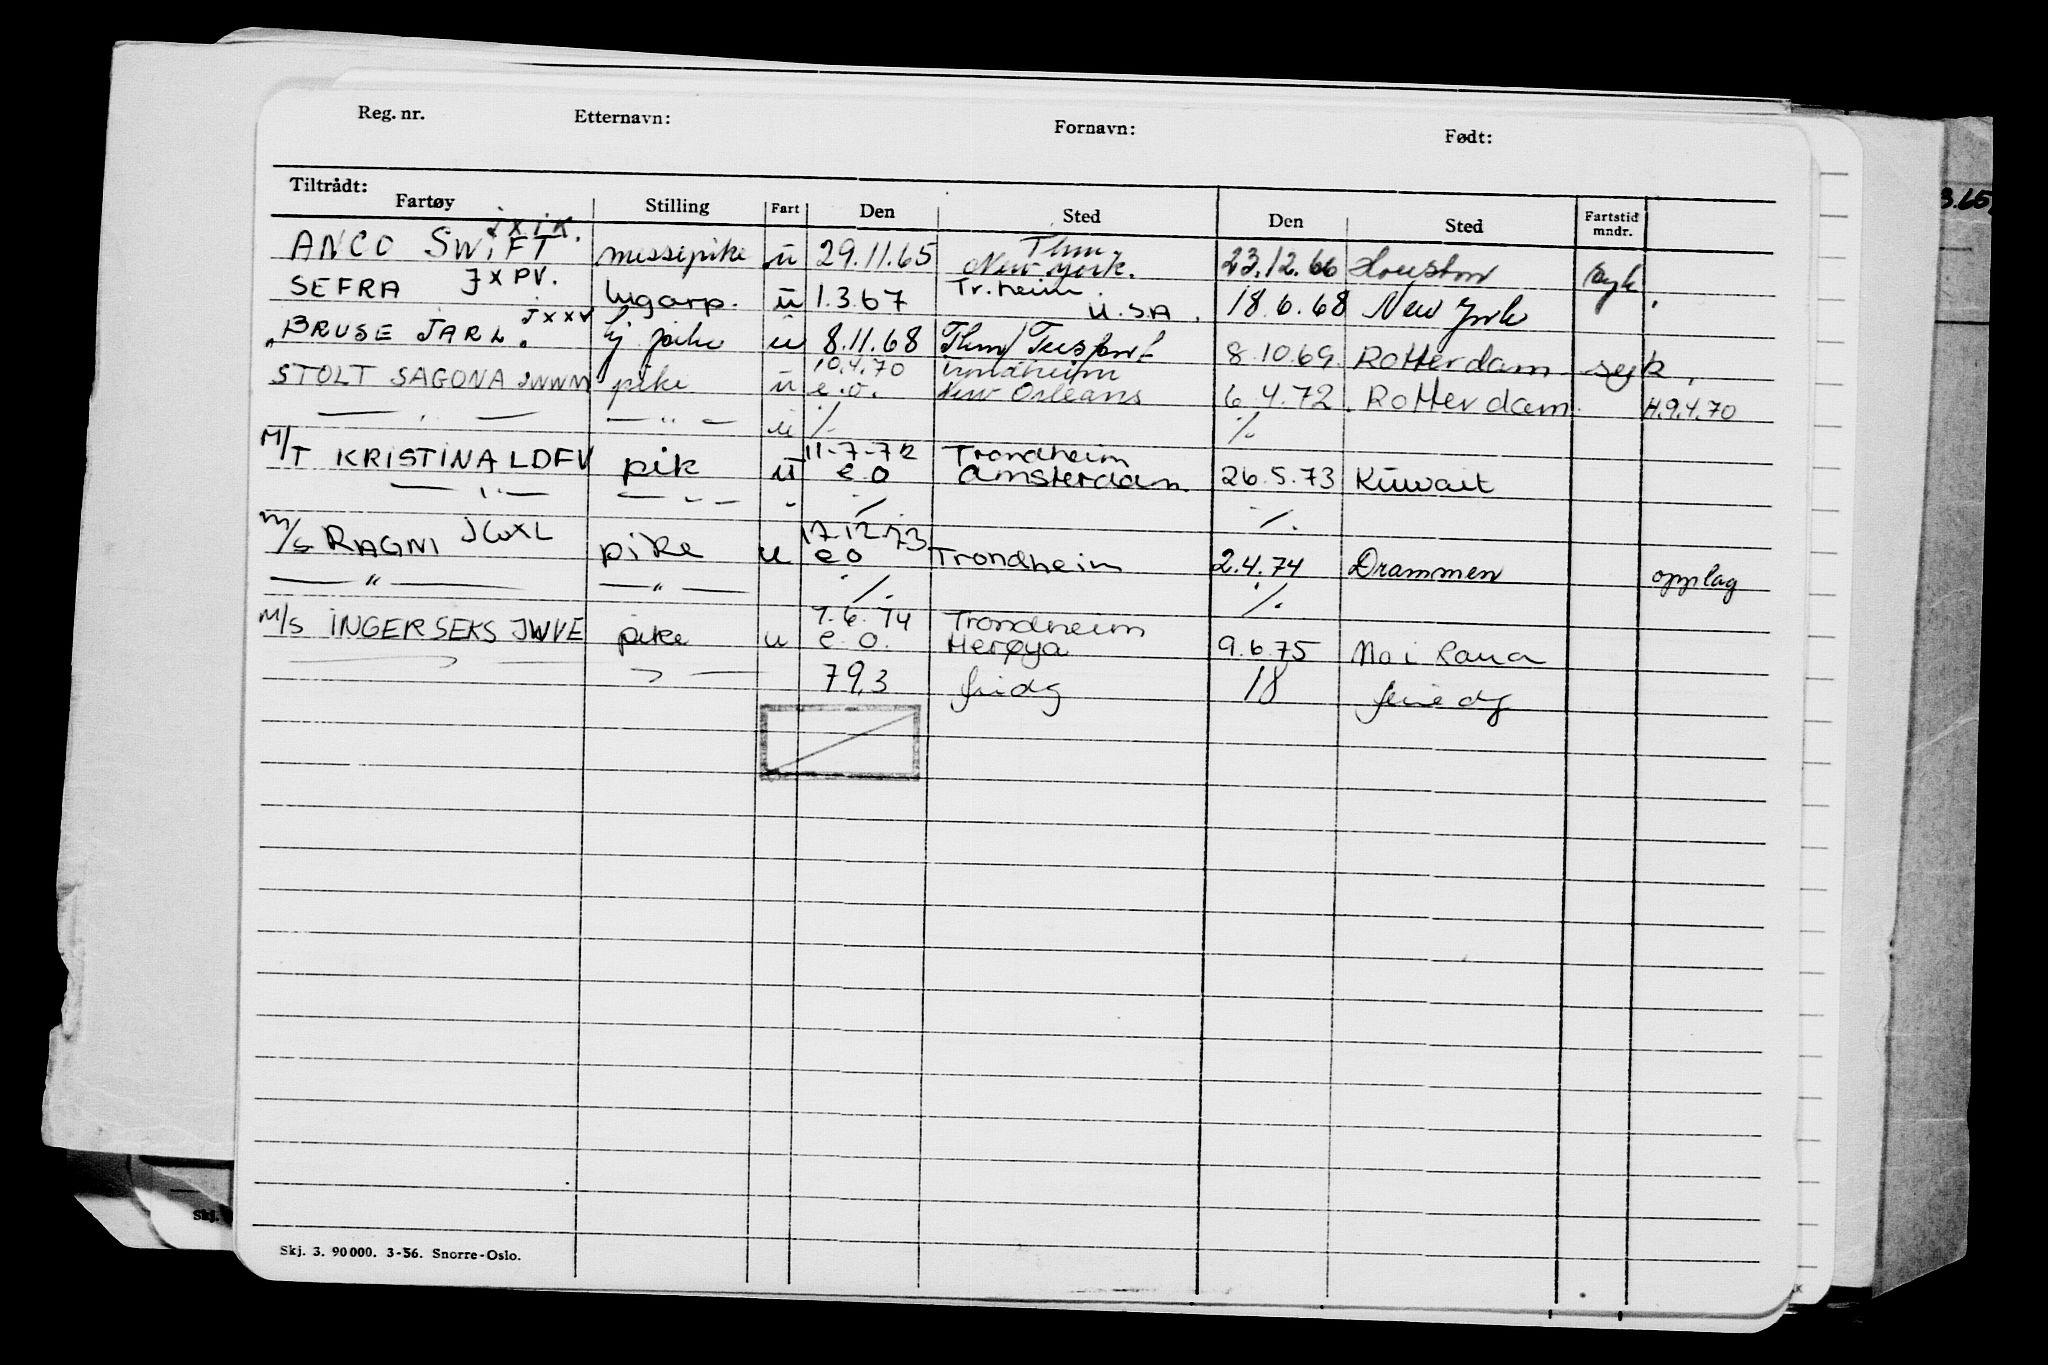 Reg. nr. Etternavn: Fornavn: Født:
Tiltrådt:
Fartøy Stilling Fart Den Sted Den Sted Fartstid mndr.
ANCO SWIFT JXIK. messepike u 29.11.65 Thm New York. 23.12.66 Houston syk.
SEFRA JXPV. lugarp. u 1.3.67 Tr.heim. U.S.A. 18.6.68 New York
BRUSE JARL. JXXV pike u 8.11.68 Thm/ 8.10.69. Rotterdam syk.
STOLT SAGONA JWWM pike u 10.4.70 e.o. Trondheim New Orleans 6.4.72. Rotterdam. H.9.4.70
— " — — " — u ./. ./.
M/T KRISTINA LDFV pik u 11-7-72 e o Trondheim Amsterdam 26.5.73 Kuwait
— " — — " — " ./. ./.
M/S RAGNI JWXL pike u 17.12.73 e o Trondheim 2.4.74 Drammen opplag
— " — — " — ./. ./.
M/S INGERSEKS JWVE pike u 7.6.74 e.o. Trondheim Herøya 9.6.75 Mo i Rana
79,3 18
Skj. 3. 90000. 3-56. Snorre-Oslo.
Skj.
3.65